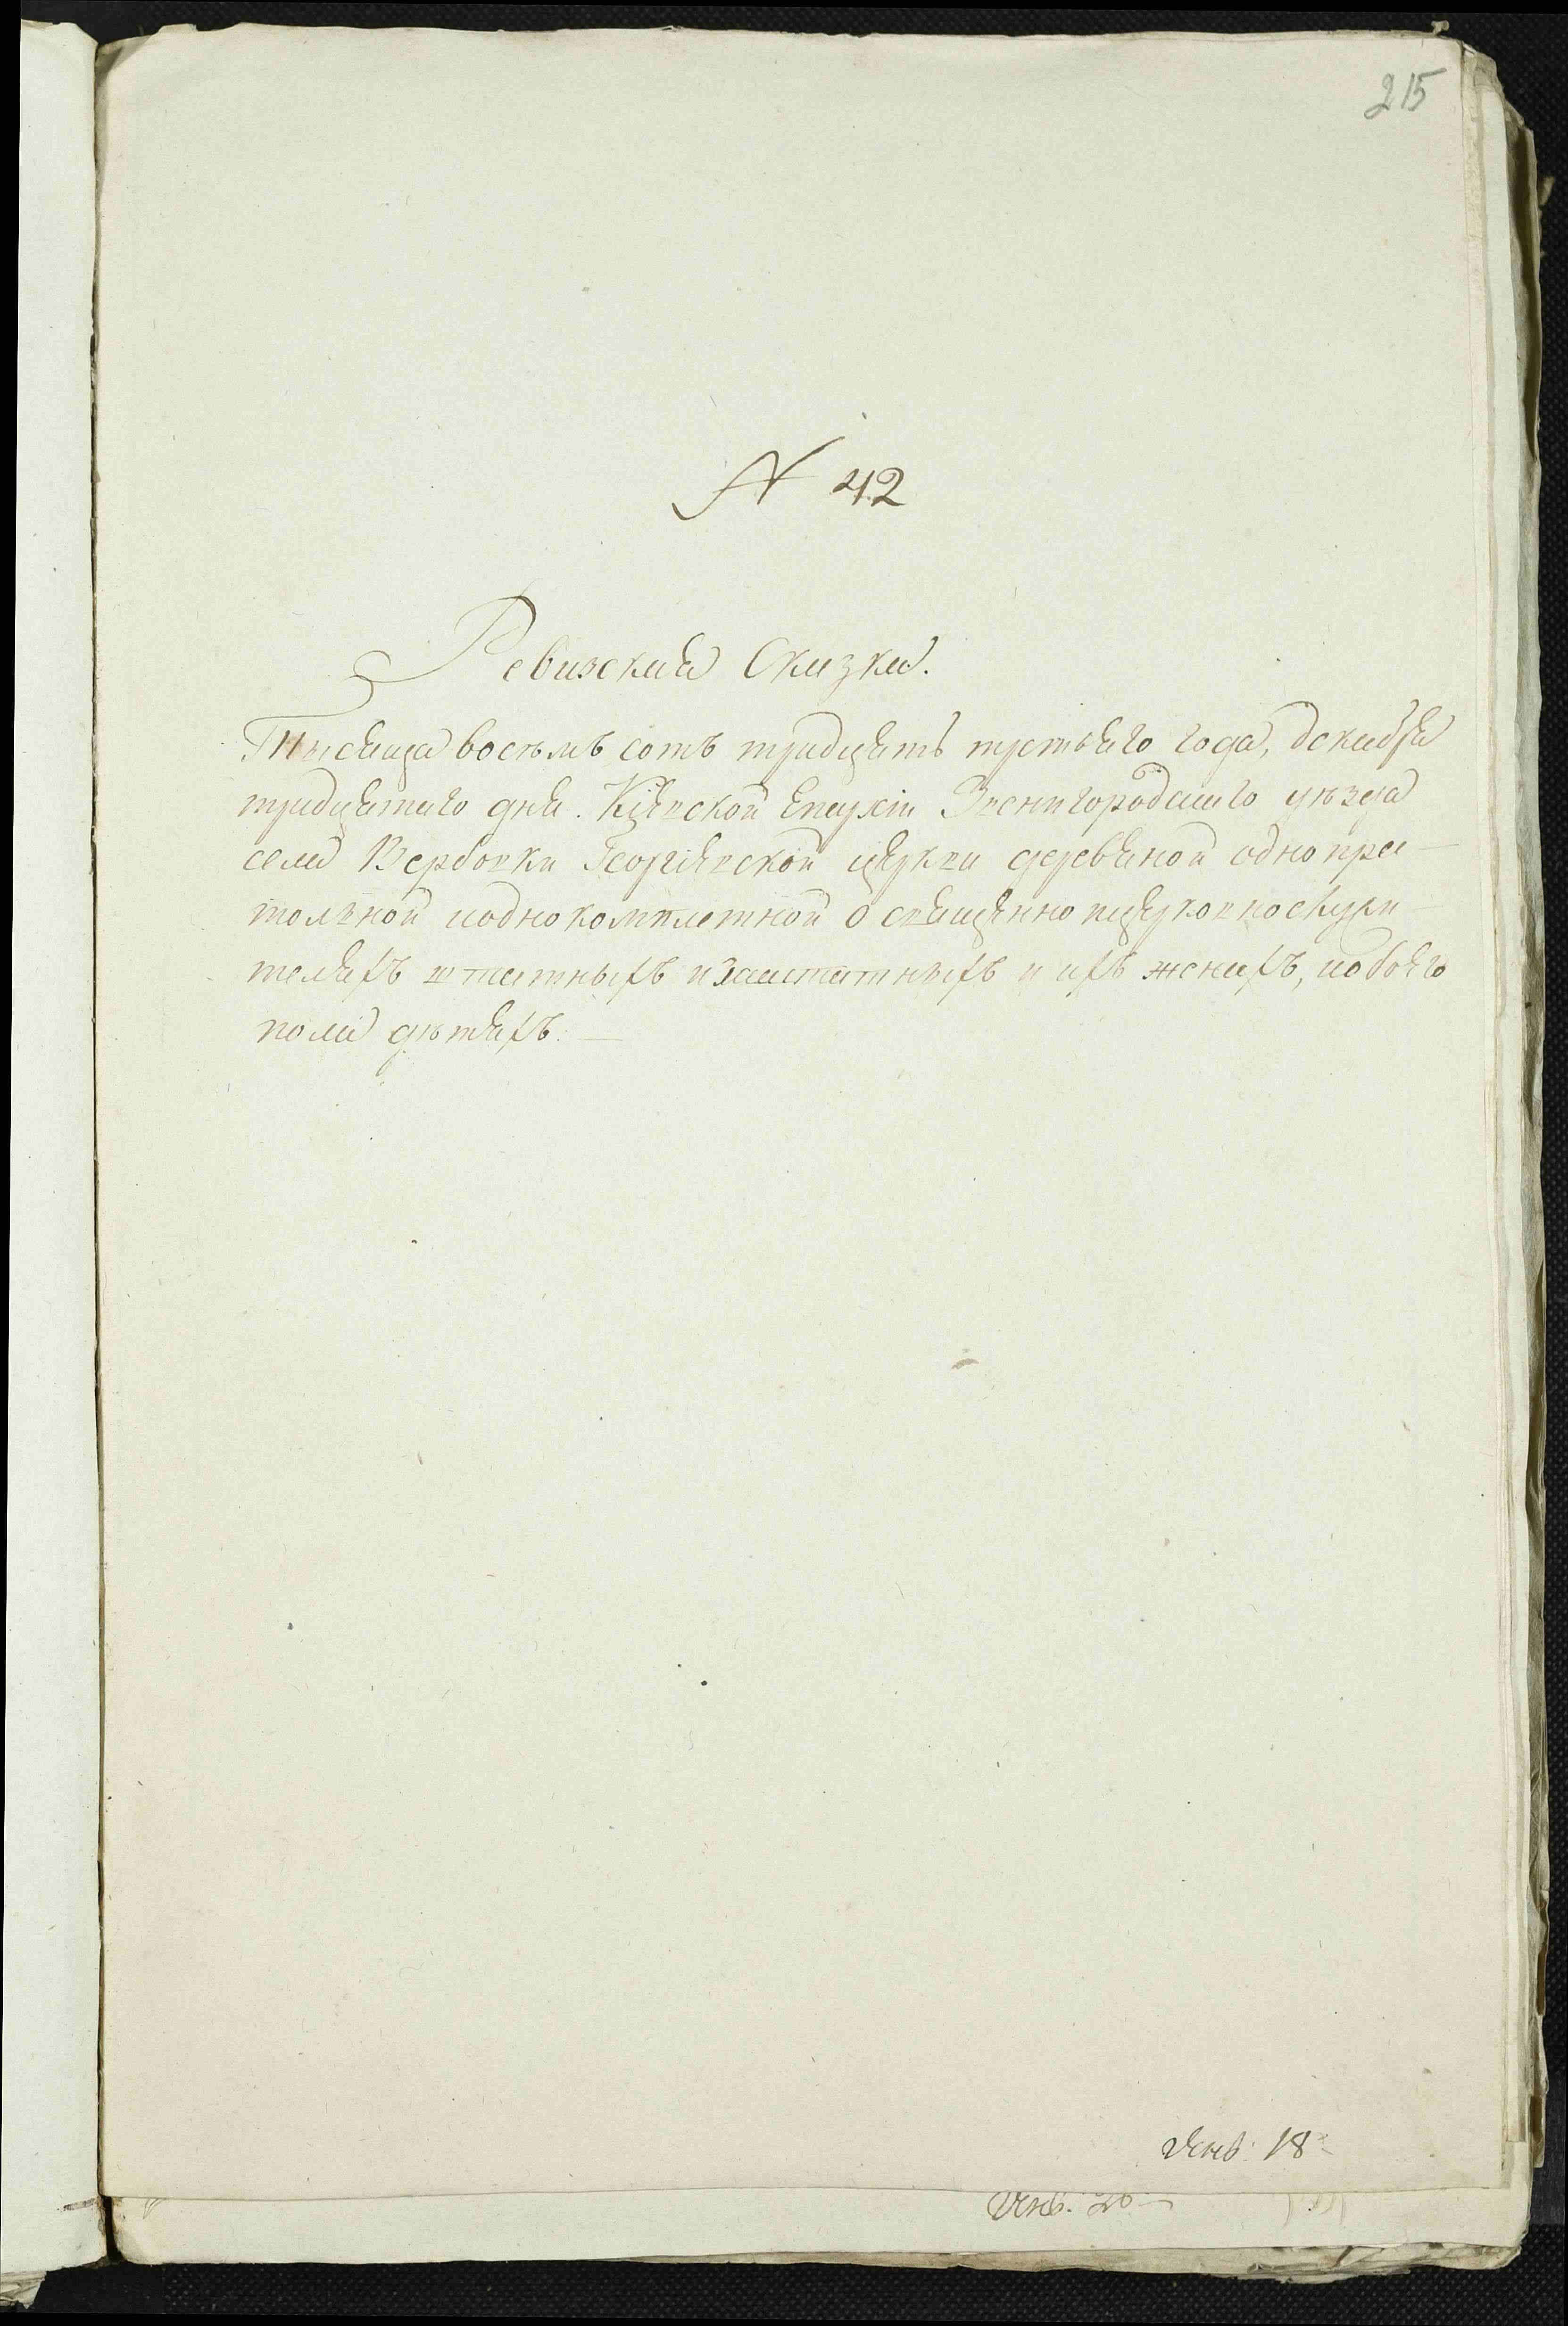 215
N 42
Ревизская Сказка.
Тысяща восемъ сотъ тридцать третьяго года, декабря
тридцатаго дня. Кіевской Епархіи Звенигородскаго уѣзда
села Вербовки Георгіевской церкви деревяной однопрес-
тольной и однокомплетной о священно и церковнослужи-
теляхъ штатныхъ и заштатныхъ и ихъ женахъ, и обоего
пола дѣтяхъ. —
Генв: 18
Генв. 20